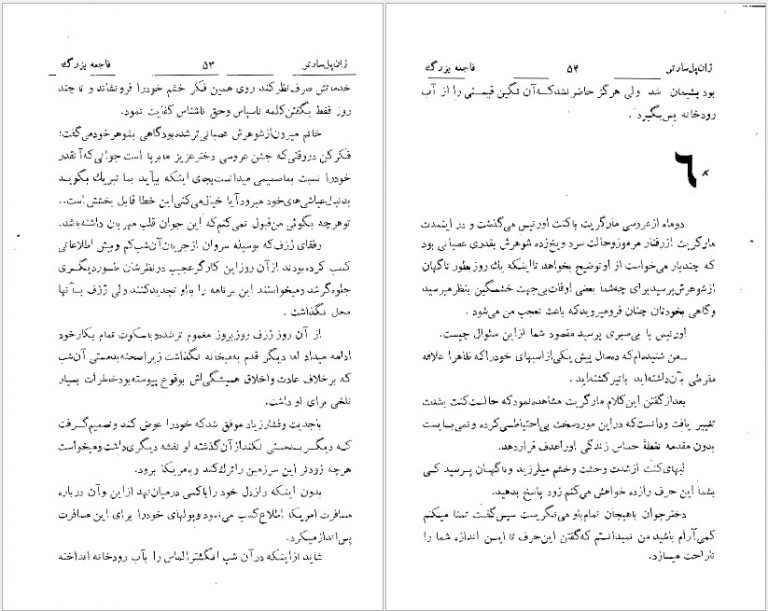 ژان پل سارتر ۵۳ فاجعه بزرگ
خدماتش صرف نظر کند روی همین فکر خشم خود را فرو نشاند و تا چند
روز فقط بگفتن کلمه ناسپاس و حق ناشناس کفایت نمود.
خانم میرون از شوهرش عصبانی تر شده بود گاهی بشوهر خود می‌گفت:
فکر کن در وقتی که جشن عروسی دختر عزیز ما برپا است جوانی که آنقدر
خود را نسبت بما صمیمی میدانست بجای اینکه بیآید بما تبریک بگوید
بدنبال عیاشی‌های خود میرود آیا خیال می‌کنی این خطا قابل بخشش است..
تو هر چه بگوئی من قبول نمی‌کنم که این جوان قلب مهربان داشته باشد.
رفقای ژزف که بوسیله سروان از جریان آن شب کم و بیش اطلاعاتی
کسب کرده بودند از آن روز این کارگر عجیب در نظرشان طور دیگری
جلوه گر شد و میخواستند این برنامه را با او تجدید کنند ولی ژزف بآنها
محل نگذاشت.
از آن روز ژزف روز بروز مغموم تر شد و با سکوت تمام بکار خود
ادامه میداد اما دیگر قدم به میخانه نگذاشت زیرا صحنه بدمستی آن شب
که برخلاف عادت و اخلاق همیشگی‌اش بوقوع پیوسته بود خاطرات بسیار
تلخی برای او داشت.
با جدیت و فشار زیاد موفق شد که خود را عوض کند و تصمیم گرفت
که دیگر بدمستی نکند از آن گذشته او نقشه دیگری داشت و میخواست
هر چه زودتر این سرزمین را ترک کند و بامریکا برود.
بدون اینکه راز دل خود را با کمی در میان نهد از این و آن در باره
مسافرت امریکا اطلاع کسب می‌نمود و پولهای خود را برای این مسافرت
پس انداز میکرد.
شاید از اینکه در آن شب انگشتر الماس را بآب رودخانه انداخته
ژان پل سارتر ۵۴ فاجعه بزرگ
بود پشیمان شد ولی هرگز حاضر نشد که آن نگین قیمتی را از آب
رودخانه پس بگیرد.
۶
دو ماه از عروسی مارگریت با کنت اورنیس می‌گذشت و در اینمدت
مارگریت از رفتار مرموز و حالت سرد و یخ زده شوهرش بقدری عصبانی بود
که چندبار می‌خواست از او توضیح بخواهد تا اینکه یک روز بطور ناگهان
از شوهرش پرسید برای چه شما بعضی اوقات بی‌جهت خشمگین بنظر میرسید
و گاهی بخودتان چنان فرو میروید که باعث تعجب من می‌شود.
اورنیس با بی‌صبری پرسید مقصود شما از این سئوال چیست.
ـ من شنیده‌ام که ده سال پیش یکی از اسبهای خود را که ظاهرا علاقه
مفرطی بآن داشته‌اید با تیر کشته‌اید.
بعد از گفتن این کلام مارگریت مشاهده نمود که حالت کنت بشدت
تغییر یافت و دانست که در این مورد سخت بی‌احتیاطی کرده و نمی‌بایست
بدون مقدمه نقطهٔ حساس زندگی او را هدف قرار دهد.
لبهای کنت از شدت وحشت و خشم میلرزید و ناگهان پرسید کی
بشما این حرف را زده خواهش می‌کنم زود پاسخ بدهید.
دختر جوان با هیجان تمام باو می‌نگریست سپس گفت تمنا میکنم
کمی آرام باشید من نمیدانستم که گفتن این حرف تا این اندازه شما را
ناراحت میسازد.